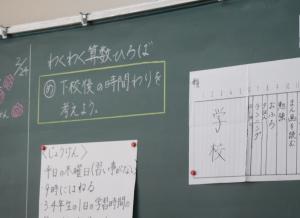 2/24
わくわく算数ひろば
め 下校後の時間わりを
考えよう。
<じょうけん>
・4日の木曜日(習い事がない)
・9時にはねる
・3、4年生の1日の学習時間の
学校
ランニング
おふろ
勉強
まん画を読む